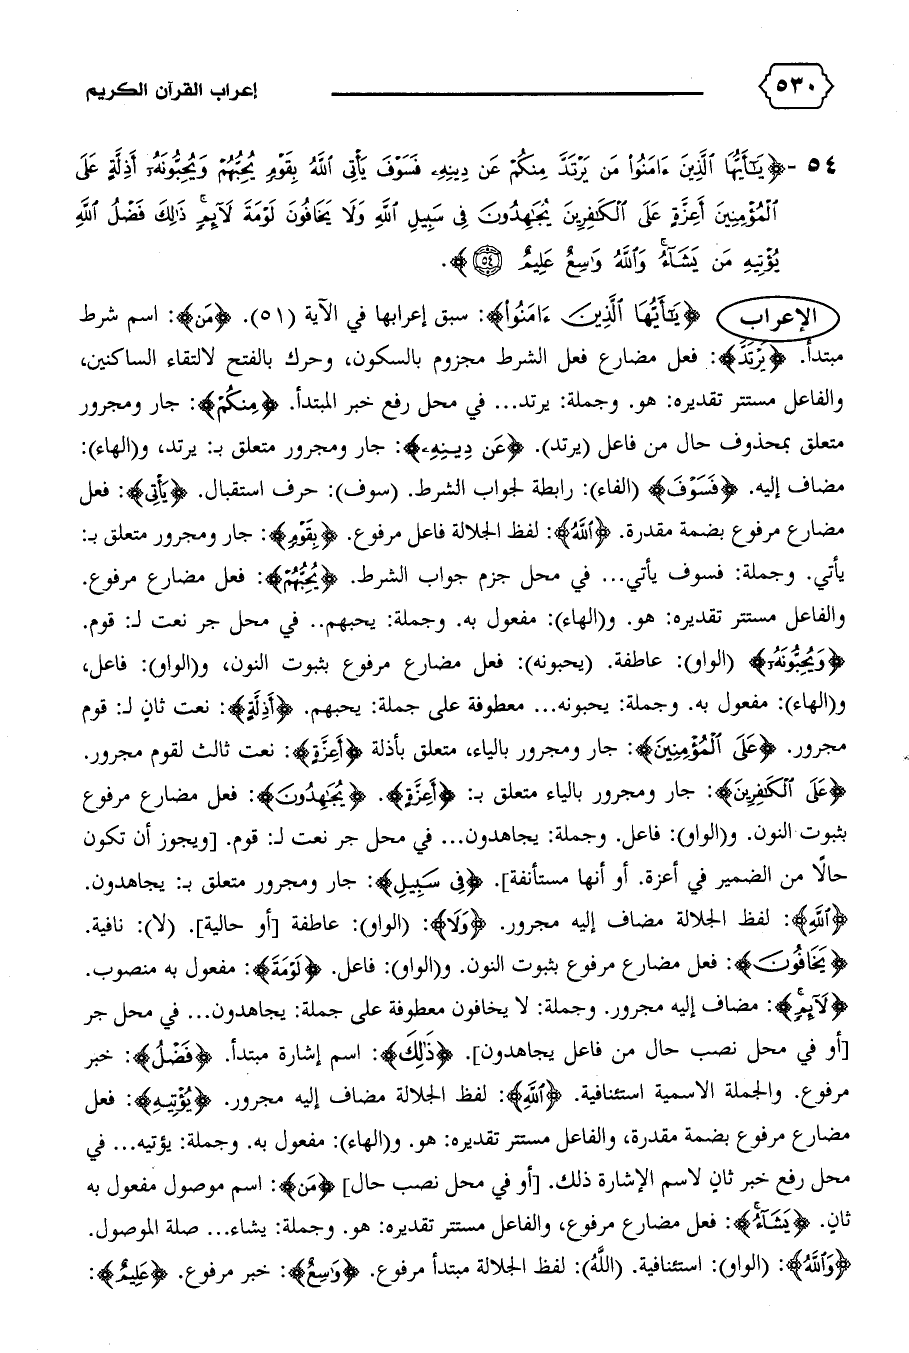 ٥٣٠ إعراب القرآن الكريم
٥٤ - ﴿يَٰٓأَيُّهَا ٱلَّذِينَ ءَامَنُوا۟ مَن يَرْتَدَّ مِنكُمْ عَن دِينِهِۦ فَسَوْفَ يَأْتِى ٱللَّهُ بِقَوْمٍ يُحِبُّهُمْ وَيُحِبُّونَهُۥٓ أَذِلَّةٍ عَلَى
ٱلْمُؤْمِنِينَ أَعِزَّةٍ عَلَى ٱلْكَٰفِرِينَ يُجَٰهِدُونَ فِى سَبِيلِ ٱللَّهِ وَلَا يَخَافُونَ لَوْمَةَ لَآئِمٍ ۚ ذَٰلِكَ فَضْلُ ٱللَّهِ
يُؤْتِيهِ مَن يَشَآءُ ۚ وَٱللَّهُ وَٰسِعٌ عَلِيمٌ ۝٥٤﴾.
الإعراب ﴿يَٰٓأَيُّهَا ٱلَّذِينَ ءَامَنُوا۟﴾: سبق إعرابها في الآية (٥١). ﴿مَن﴾: اسم شرط
مبتدأ. ﴿يَرْتَدَّ﴾: فعل مضارع فعل الشرط مجزوم بالسكون، وحرك بالفتح لالتقاء الساكنين،
والفاعل مستتر تقديره: هو. وجملة: يرتد... في محل رفع خبر المبتدأ. ﴿مِنكُمْ﴾: جار ومجرور
متعلق بمحذوف حال من فاعل (يرتد). ﴿عَن دِينِهِۦ﴾: جار ومجرور متعلق بـ: يرتد، و(الهاء):
مضاف إليه. ﴿فَسَوْفَ﴾ (الفاء): رابطة لجواب الشرط. (سوف): حرف استقبال. ﴿يَأْتِى﴾: فعل
مضارع مرفوع بضمة مقدرة. ﴿ٱللَّهُ﴾: لفظ الجلالة فاعل مرفوع. ﴿بِقَوْمٍ﴾: جار ومجرور متعلق بـ:
يأتي. وجملة: فسوف يأتي... في محل جزم جواب الشرط. ﴿يُحِبُّهُمْ﴾: فعل مضارع مرفوع.
والفاعل مستتر تقديره: هو. و(الهاء): مفعول به. وجملة: يحبهم.. في محل جر نعت لـ: قوم.
﴿وَيُحِبُّونَهُۥٓ﴾ (الواو): عاطفة. (يحبونه): فعل مضارع مرفوع بثبوت النون، و(الواو): فاعل،
و(الهاء): مفعول به. وجملة: يحبونه... معطوفة على جملة: يحبهم. ﴿أَذِلَّةٍ﴾: نعت ثانٍ لـ: قوم
مجرور. ﴿عَلَى ٱلْمُؤْمِنِينَ﴾: جار ومجرور بالياء، متعلق بأذلة ﴿أَعِزَّةٍ﴾: نعت ثالث لقوم مجرور.
﴿عَلَى ٱلْكَٰفِرِينَ﴾: جار ومجرور بالياء متعلق بـ: ﴿أَعِزَّةٍ﴾. ﴿يُجَٰهِدُونَ﴾: فعل مضارع مرفوع
بثبوت النون. و(الواو): فاعل. وجملة: يجاهدون... في محل جر نعت لـ: قوم. [ويجوز أن تكون
حالًا من الضمير في أعزة. أو أنها مستأنفة]. ﴿فِى سَبِيلِ﴾: جار ومجرور متعلق بـ: يجاهدون.
﴿ٱللَّهِ﴾: لفظ الجلالة مضاف إليه مجرور. ﴿وَلَا﴾: (الواو): عاطفة [أو حالية]. (لا): نافية.
﴿يَخَافُونَ﴾: فعل مضارع مرفوع بثبوت النون. و(الواو): فاعل. ﴿لَوْمَةَ﴾: مفعول به منصوب.
﴿لَآئِمٍ ۚ﴾: مضاف إليه مجرور. وجملة: لا يخافون معطوفة على جملة: يجاهدون... في محل جر
[أو في محل نصب حال من فاعل يجاهدون]. ﴿ذَٰلِكَ﴾: اسم إشارة مبتدأ. ﴿فَضْلُ﴾: خبر
مرفوع. والجملة الاسمية استئنافية. ﴿ٱللَّهِ﴾: لفظ الجلالة مضاف إليه مجرور. ﴿يُؤْتِيهِ﴾: فعل
مضارع مرفوع بضمة مقدرة، والفاعل مستتر تقديره: هو. و(الهاء): مفعول به. وجملة: يؤتيه... في
محل رفع خبر ثانٍ لاسم الإشارة ذلك. [أو في محل نصب حال] ﴿مَن﴾: اسم موصول مفعول به
ثانٍ. ﴿يَشَآءُ ۚ﴾: فعل مضارع مرفوع، والفاعل مستتر تقديره: هو. وجملة: يشاء... صلة الموصول.
﴿وَٱللَّهُ﴾: (الواو): استئنافية. (اللَّهُ): لفظ الجلالة مبتدأ مرفوع. ﴿وَٰسِعٌ﴾: خبر مرفوع. ﴿عَلِيمٌ﴾: